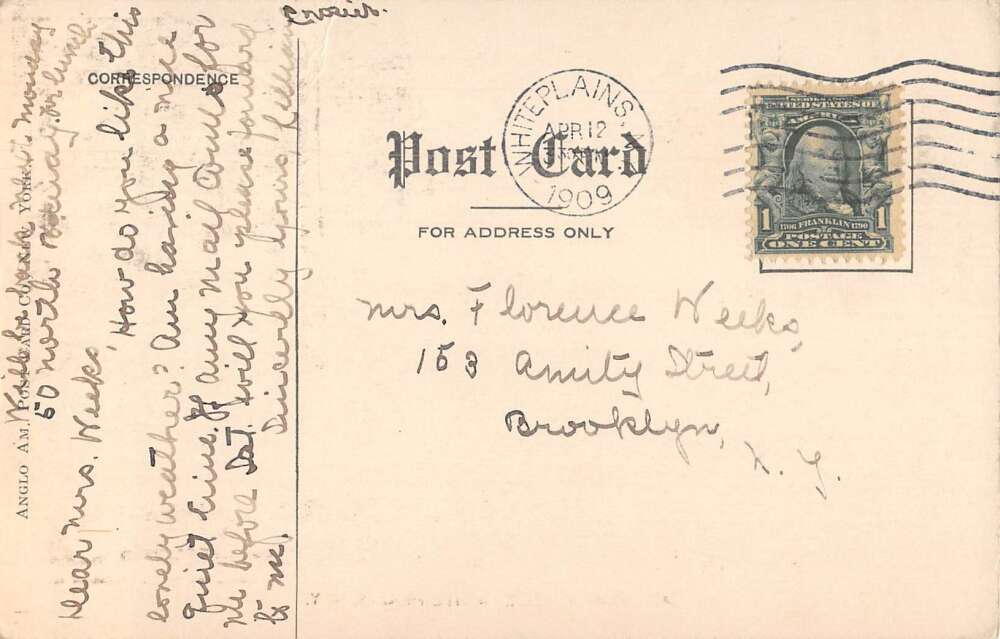 CORRESPONDENCE
Post Card
FOR ADDRESS ONLY
WHITE PLAINS, N.
APR 12
1909
SERIES 1902
UNITED STATES OF
AMERICA
1 1706 FRANKLIN 1790 1
POSTAGE
ONE CENT
Mrs. Florence Weeks,
153 Amity Street,
Brooklyn,
N. Y.
ANGLO AM. POST CARD CO., NEW YORK
Monday
50 North
Dear Mrs. Weeks,
How do you like this
lonely weather? Am having a nice
quiet time. If any mail comes for
me before Sat. will you please forward
to me.
Sincerely yours, Lillian
Crosier.